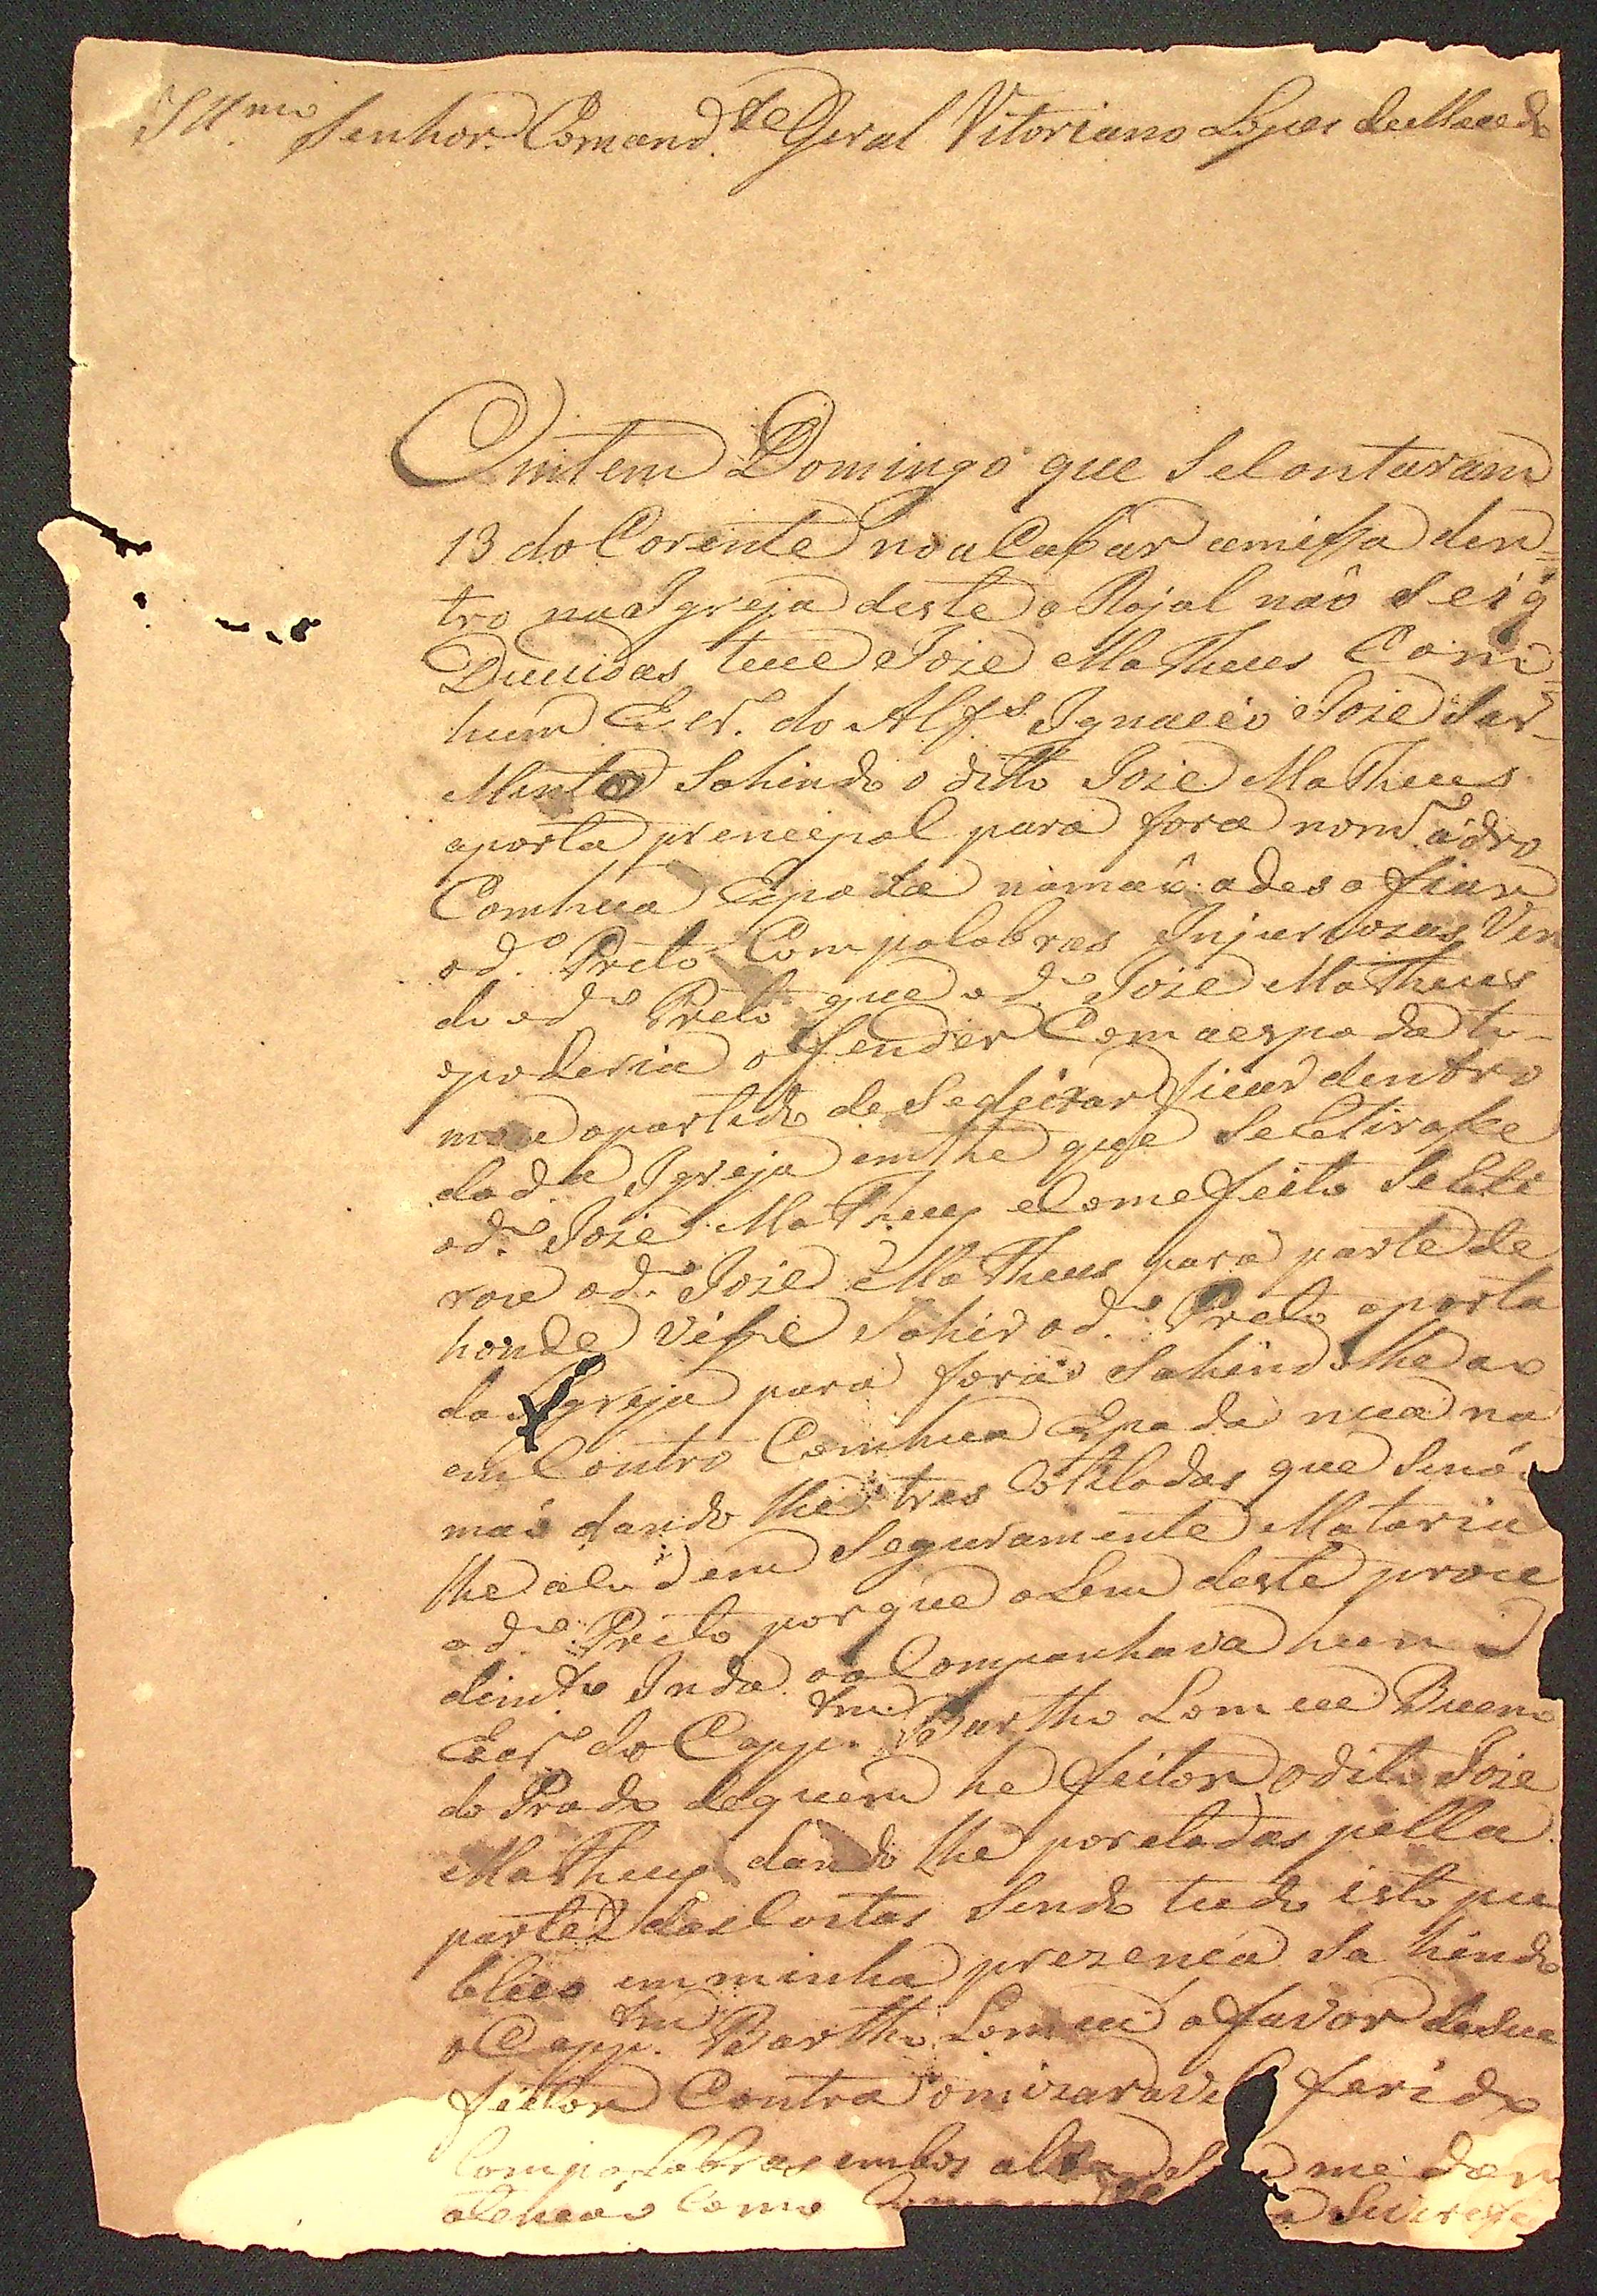 Illmo Senhor Comand.te Geral Vitoriano Lopes de Macedo
Ontem Domingo que Se Contaram
13 do Corente no aCabar amissa den=
tro na Igreja deste a Rajal não Sei q̃
Duuidas teue Joze Matheus Com
hum Ecr.o do Alf.s Ignacio Joze Sar=
Mento Sahindo o ditto Joze Matheus
aporta prencepal para fora nom.mo adro
Comhua Espada namaõ adesafiar
od.o Preto Com palabras Injuriozas Ven
do od.o Preto que od.o Joze Matheus
opoderia ofender Com aespada to-
mou apartido de Sedeixar ficar dentro
dad.a Igreja emthe que SeRetirasse
od.o Joze Matheus eComefeito SeReti
rou od.o Joze Matheus para parte de
honde visse Sahir od.o Preto aporta
da Igreja para fora Sahindolhe ao
emContro Comhua Espada nua na
maõ dandolhe tres Cotiladas que Senaõ
lhe acudem Seguramente Mataria
od.o Preto porque alem deste proce
dimto Inda oaCompanhava hum
Ecr.o do Capp.am Bartholomeu Bueno
do Prado dequem he feitor odito Joze
Matheus dandolhe poretadas pella
parte dasCostas Sendo tudo isto pu
blico emminha prezença Sahindo
oCapp.am Bartholomeu afavor deSeu
feitor Contra omizaravel ferido
Compalabras embos alta me dam
atencaõ Como